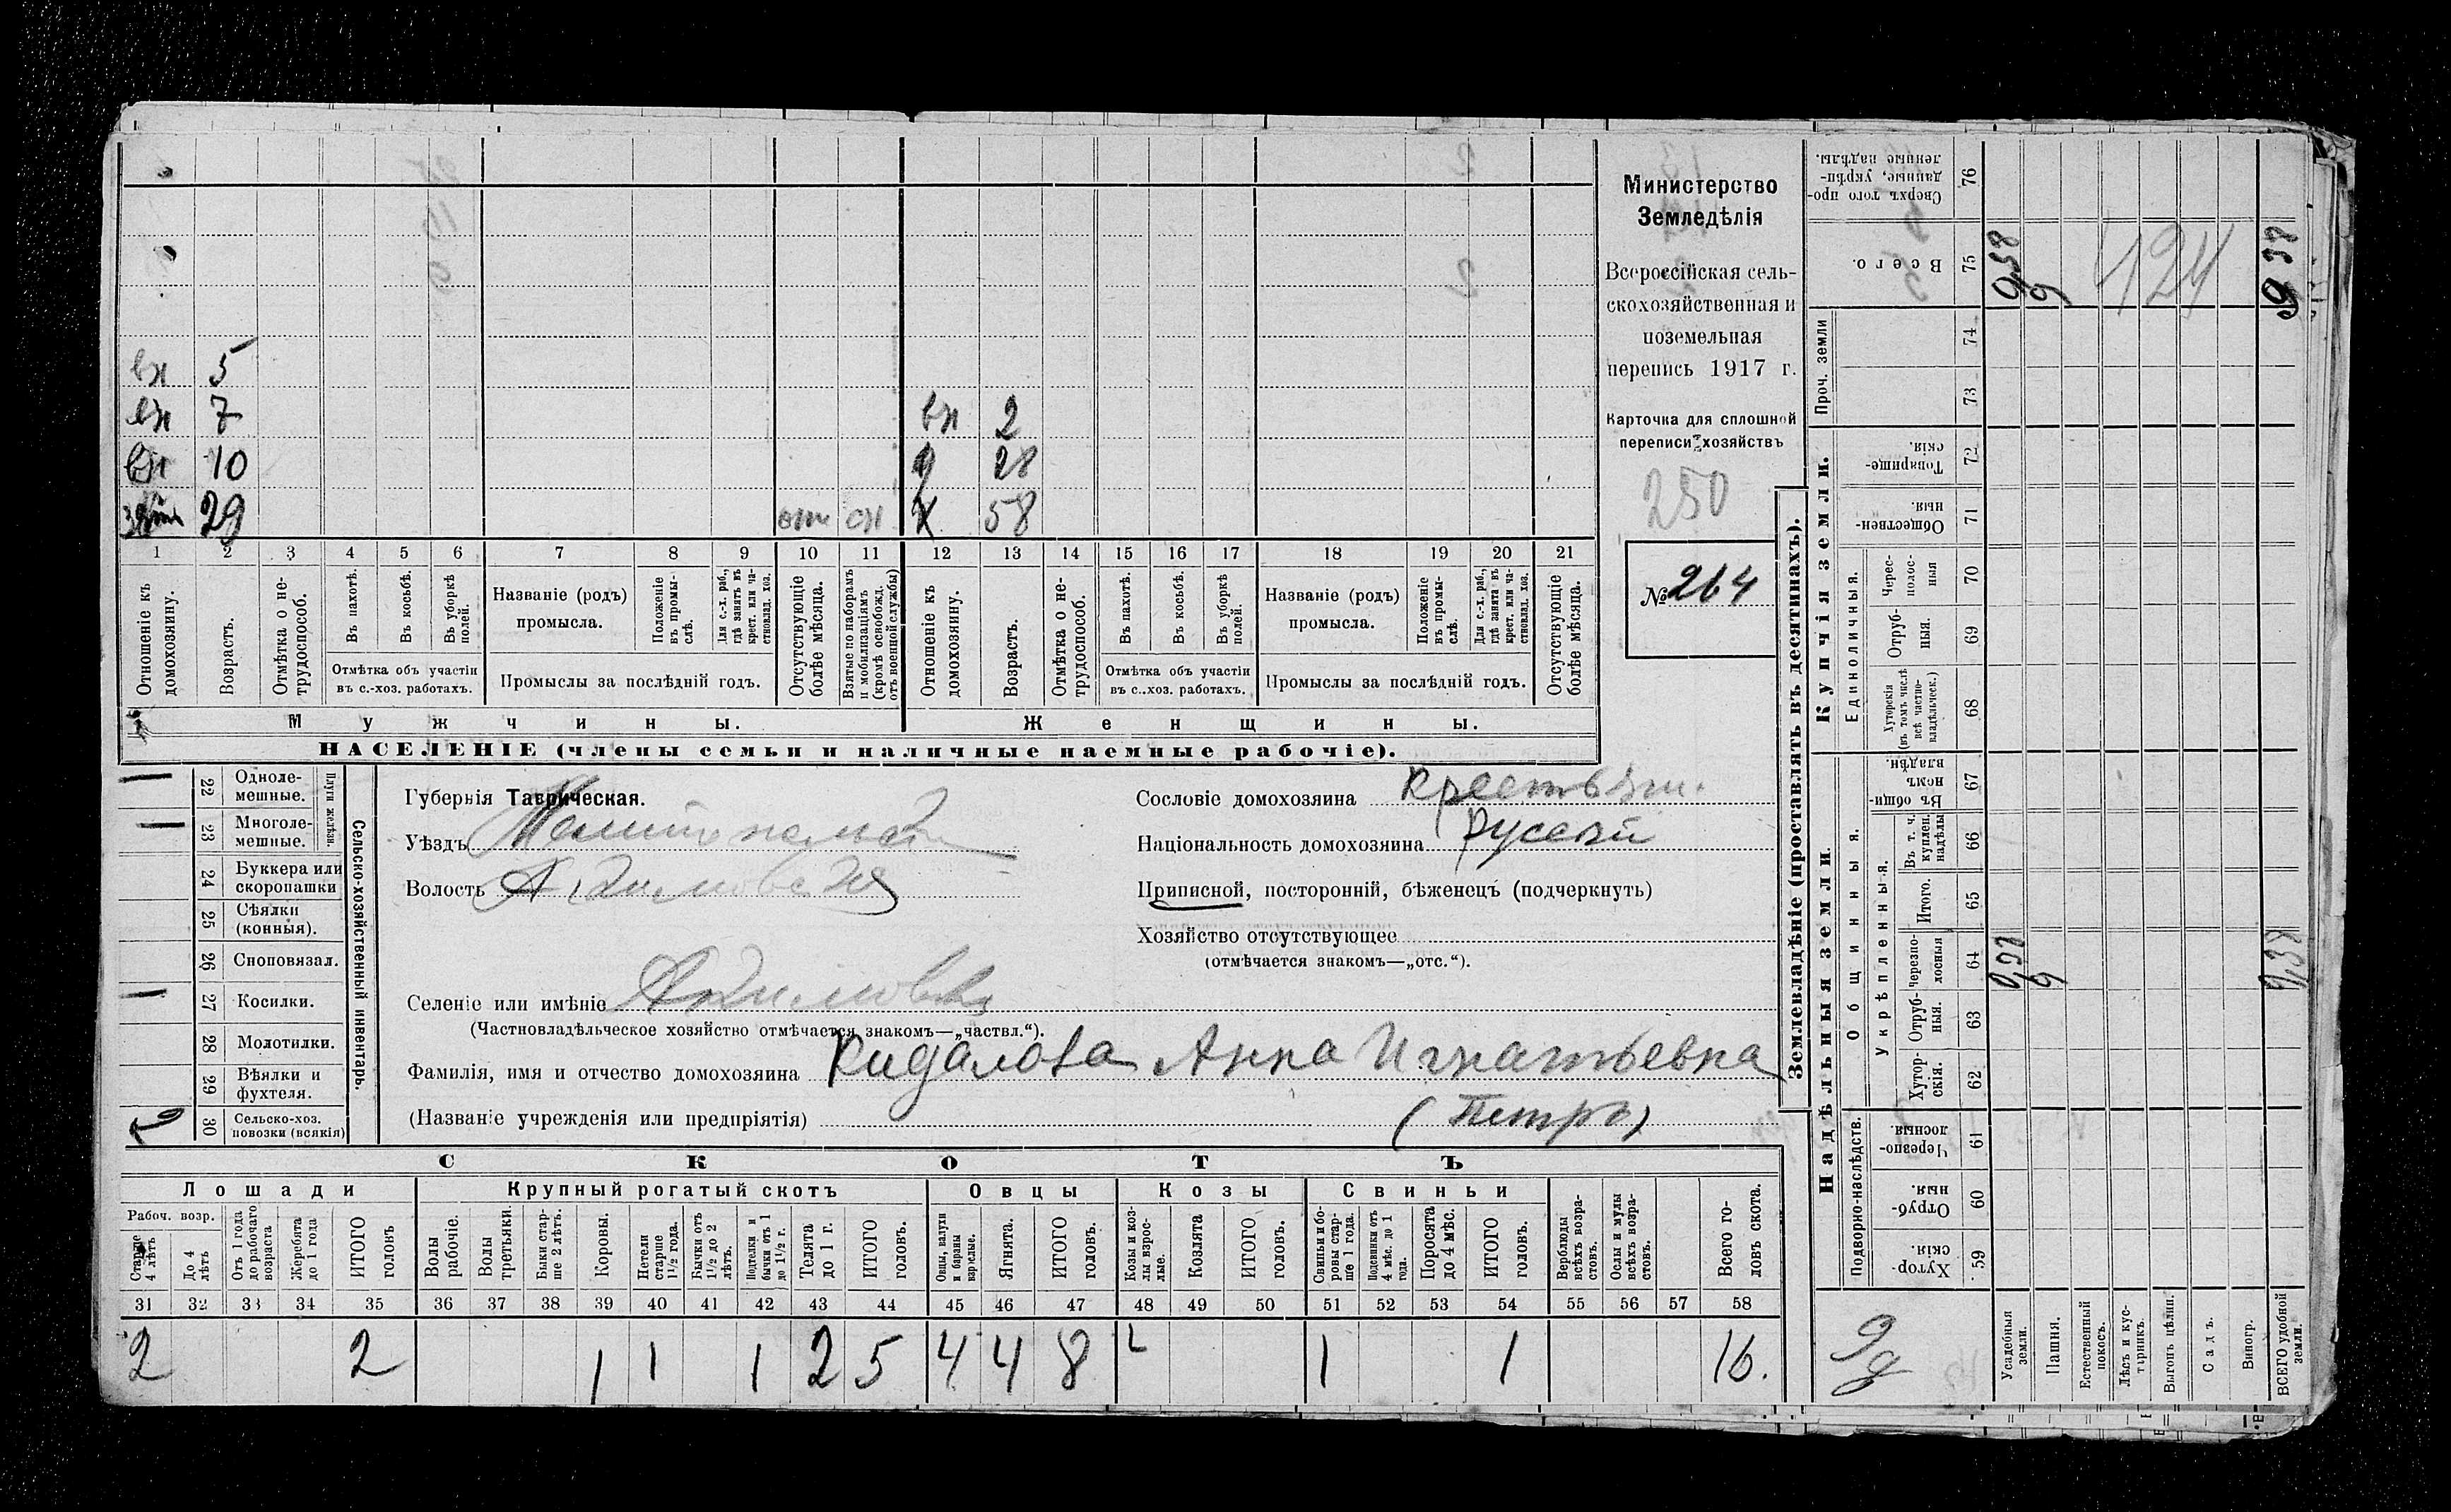 вн 5
вн 7 вн 2
вн 10 28
29 отс сл Х 58
1 2 3 4 5 6 7 8 9 10 11 12 13 14 15 16 17 18 19 20 21
Отношеніе къ домохозяину.
Возрастъ.
Отмѣтка о нетрудоспособ.
Въ пахотѣ.
Въ косьбѣ.
Въ уборкѣ полей.
Отмѣтка объ участіи
въ с.-хоз. работахъ.
Названіе (родъ)
промысла.
Положеніе въ промыслѣ.
Для с.-х. раб., гдѣ занятъ въ крест. или частновлад. хоз.
Промыслы за послѣдній годъ.
Отсутствующіе болѣе мѣсяца.
Взятые по наборамъ и мобилизаціямъ (кромѣ освобожд. отъ военной службы)
Отношеніе къ домохозяину.
Возрастъ.
Отмѣтка о нетрудоспособ.
Въ пахотѣ.
Въ косьбѣ.
Въ уборкѣ полей.
Отмѣтка объ участіи
въ с..хоз. работахъ.
Названіе (родъ)
промысла.
Положеніе въ промыслѣ.
Для с.-х. раб., гдѣ занята въ крест. или частновлад. хоз.
Промыслы за послѣдній годъ.
Отсутствующіе болѣе мѣсяца.
Мужчины. Женщины.
НАСЕЛЕНІЕ (члены семьи и наличные наемные рабочіе).
Министерство
Земледѣлія
Всероссійская сель-
скохозяйственная и
поземельная
перепись 1917 г.
Карточка для сплошной
переписи хозяйствъ
250
№ 264
22 Одноле-
мешные.
23 Многоле-
мешные.
Плуги желѣзн.
24 Буккера или
скоропашки
25 Сѣялки
(конныя).
26 Сноповязал.
27 Косилки.
28 Молотилки.
29 Вѣялки и
фухтеля.
30 Сельско-хоз.
повозки (всякія)
Сельско-хозяйственный инвентарь.
Губернія Таврическая.
Уѣздъ Мелитопольскій
Волость Акимовская
Селеніе или имѣніе Акимовка
(Частновладѣльческое хозяйство отмѣчается знакомъ—„частвл.“).
Фамилія, имя и отчество домохозяина Кидалова Анна Игнатьевна
(Названіе учрежденія или предпріятія) (Петръ)
Сословіе домохозяина крестьян.
Національность домохозяина русскій
Приписной, посторонній, бѣженецъ (подчеркнуть)
Хозяйство отсутствующее
(отмѣчается знакомъ—„отс.“).
СКОТЪ
Лошади Крупный рогатый скотъ Овцы Козы Свиньи
Рабоч. возр.
Старше 4 лѣтъ
До 4 лѣтъ
Отъ 1 года до рабочаго возраста
Жеребята до 1 года
ИТОГО головъ
Волы рабочіе.
Волы третьяки.
Быки старше 2 лѣтъ.
Коровы.
Нетели старше 1½ года.
Бычки отъ 1½ до 2 лѣтъ.
Подтелки и бычки отъ 1 до 1½ г.
Телята до 1 г.
ИТОГО головъ.
Овцы, валухи и бараны взрослые.
Ягнята.
ИТОГО головъ.
Козы и козлы взрослые.
Козлята
ИТОГО головъ.
Свиньи и боровы старше 1 года.
Подсвинки отъ 4 мѣс. до 1 года.
Поросята до 4 мѣс.
ИТОГО головъ.
Верблюды всѣхъ возрастовъ.
Ослы и мулы всѣхъ возрастовъ.
Всего головъ скота.
31 32 33 34 35 36 37 38 39 40 41 42 43 44 45 46 47 48 49 50 51 52 53 54 55 56 57 58
2 2 1 1 1 2 5 4 4 8 1 1 16.
Землевладѣніе (проставлять въ десятинахъ).
Надѣльныя земли.
Купчія земли.
Проч. земли
Подворно-наслѣдств.
Общинныя.
Укрѣпленныя.
Единоличныя.
Сверхъ того проданные, укрѣпленные надѣлы. 76
Всего. 75
74
73
Товарищескія. 72
Общественныя. 71
Чересполосныя 70
Отрубныя. 69
Хуторскія (въ томъ числѣ всѣ частновладѣльческ.) 68
Въ общинномъ владѣн. 67
Въ т. ч. куплен. надѣлы 66
Итого. 65
Черезполосныя 64
Отрубныя. 63
Хуторскія. 62
Черезполосныя 61
Отрубныя. 60
Хуторскія. 59
Усадебныя земли.
Пашня.
Естественный покосъ.
Лѣсъ и кустарникъ.
Выгонъ цѣлин.
Садъ.
Виногр.
ВСЕГО удобной земли.
9 9
124
9,38
9д